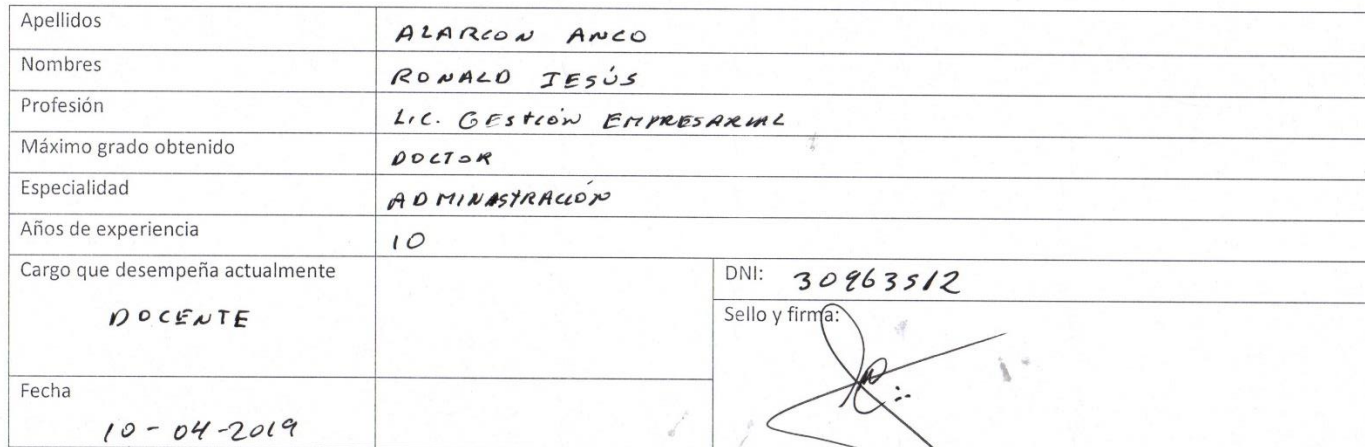 Apellidos
ALARCON ANCO
Nombres
RONALD JESÚS
Profesión
LIC. GESTIÓN EMPRESARIAL
Máximo grado obtenido
DOCTOR
Especialidad
ADMINISTRACIÓN
Años de experiencia
10
Cargo que desempeña actualmente
DOCENTE
DNI: 30963512
Sello y firma:
Fecha
10-04-2019